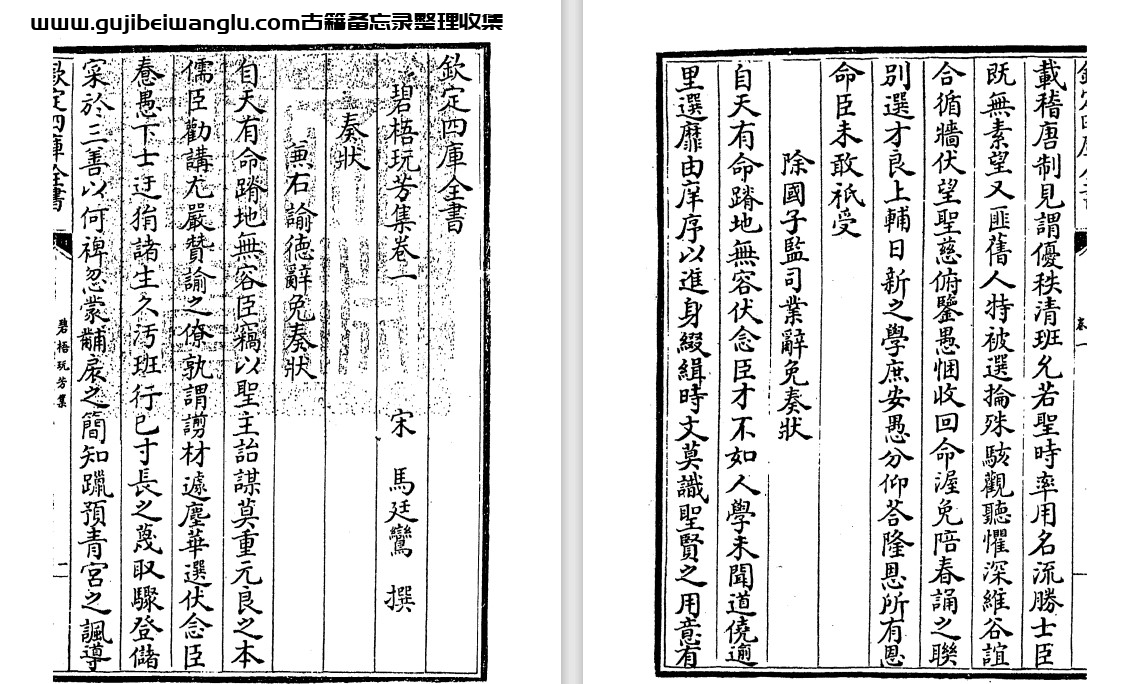 www.gujibeiwanglu.com古籍备忘录整理收集
欽定四庫全書
碧梧玩芳集卷一 宋 馬廷鸞 撰
奏狀
兼右諭德辭免奏狀
自天有命蹐地無容臣竊以聖主詒謀莫重元良之本
儒臣勸講尤嚴贊諭之僚孰謂謭材遽塵華選伏念臣
惷愚下士迂狷諸生久汚班行已寸長之蔑取驟登儲
寀於三善以何裨忽蒙黼扆之簡知躐預青宮之諷導
欽定四庫全書 碧梧玩芳集
卷一
載稽唐制見謂優秩清班允若聖時率用名流勝士臣
既無素望又匪舊人特被選掄殊駭觀聽懼深維谷誼
合循牆伏望聖慈俯鑒愚悃收回命渥免陪春誦之聯
別選才良上輔日新之學庶安愚分仰荅隆恩所有恩
命臣未敢祗受
除國子監司業辭免奏狀
自天有命蹐地無容伏念臣才不如人學未聞道僥逾
里選靡由庠序以進身綴緝時文莫識聖賢之用意有